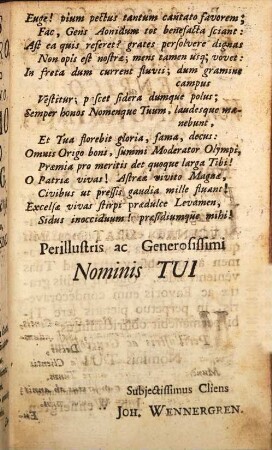 Euge! pium pectus tantum cantato favorem;
Fac, Gens Aonidum tot benefacta sciant:
Ast ea quis referet? grates persolvere dignas
Non opis est nostræ; mens tamen usq; vovet:
In freta dum current fluvii; dum gramine
campus
Vestitur; pascet sidera dumque polus;
Semper honos Nomenque Tuum, laudesque ma-
nebunt,
Et Tua florebit gloria, fama, decus:
Omnis Origo boni, summi Moderator Olympi,
Præmia pro meritis det quoque larga Tibi!
O Patriæ vivas! Astrææ vivito Magnæ,
Civibus ut pressis gaudia mille fluant!
Excelsæ vivas stirpi prædulce Levamen,
Sidus inocciduum præsidiumque mihi!
Perillustris ac Generosissimi
Nominis TUI
Subjectissimus Cliens
JOH. WENNERGREN.